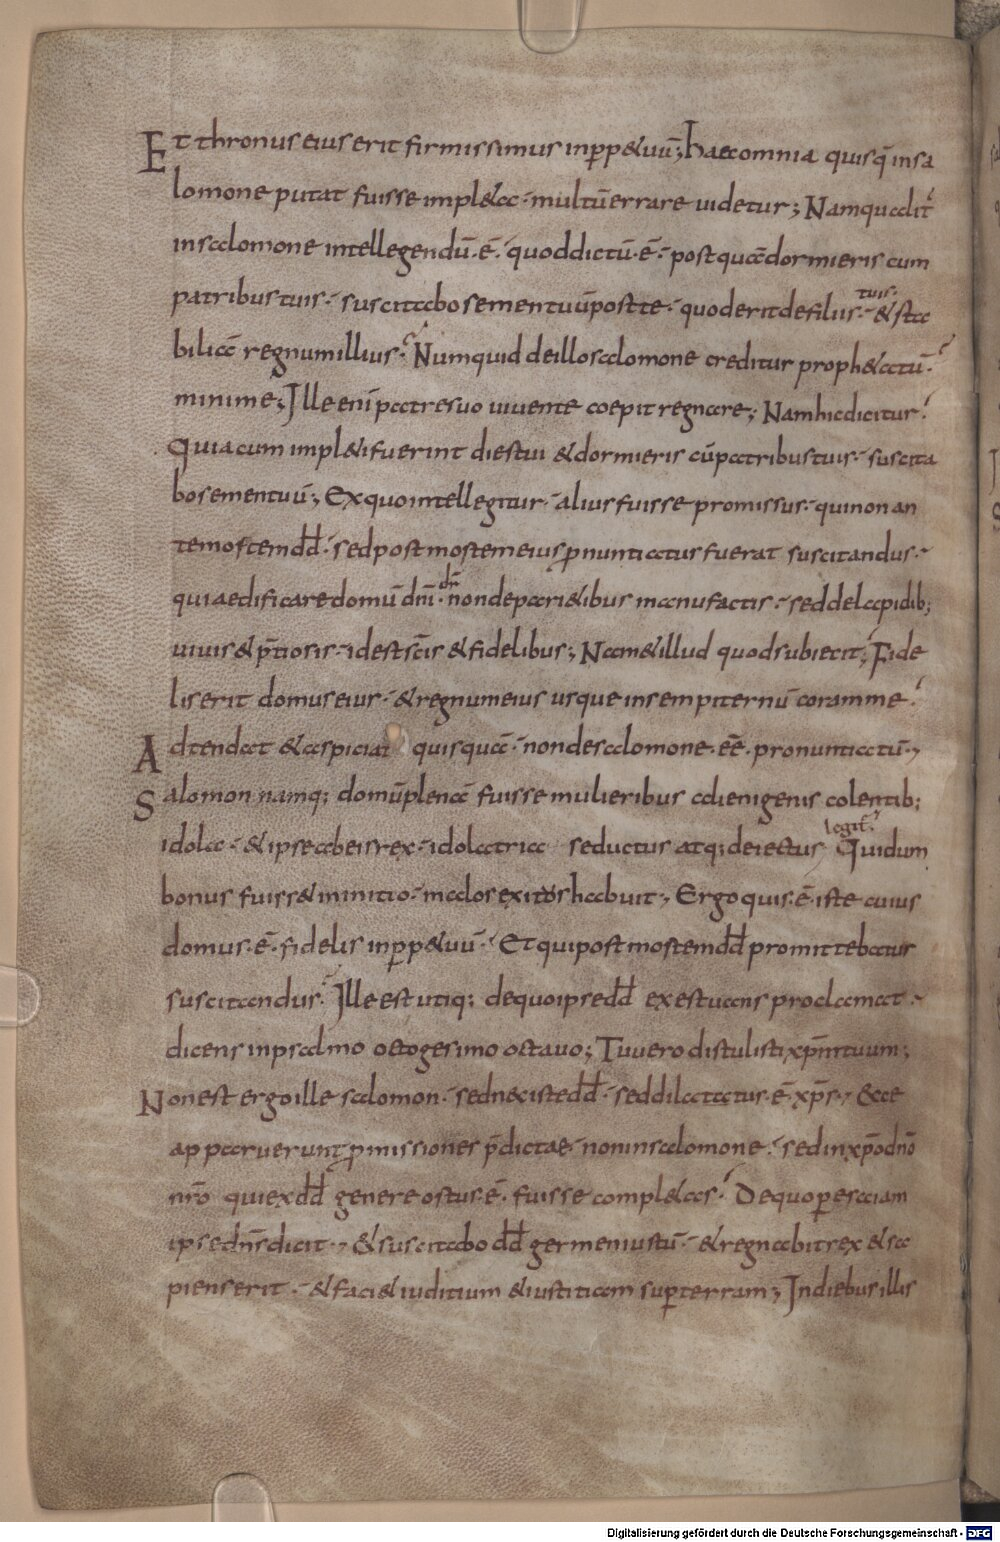 Et thronus eius erit firmissimus inp̄p&uū; haec omnia quisq̄ insa
lomone putat fuisse impl&a· multū errare uidetur; Nam quod it̄
insalomone intellegendū·ē· quod dictū·ē· postquā dormieris cum
patribus tuis· suscitabo semen tuū post te· quod erit defiliis· tuis· & sta
bilia̅ regnum illius· Numquid deillo salomone creditur proph&atū·
minime; Ille eni̅ patre suo uiuente coepit regnare; Nam hic dicitur·
Quia cum impl&i fuerint dies tui & dormieris cū patribus tuis· suscita
bo semen tuū; Ex quo intellegitur· alius fuisse promissus· qui non an
te mortem dd̄· sed post mortem eius p̄nuntiatus fuerat suscitandus·
qui aedificare domū dn̄i dn̄ non de pari&ibus manufactis· sed delapidib;
uiuis & p̄tiosis· id est sc̄is & fidelibus; Nam & illud quod subiecit; Fide
lis erit domus eius· & regnum eius usque in sempiternū coram me·
Adtendat & aspiciat quisquā· non de salomone·ēē·pronuntiatū·
Salomon namq; domū plenā fuisse mulieribus alienigenis colentib;
idola· & ipse ab eis rex· idolatria seductus atq; deiectus legit̄· Qui dum
bonus fuiss& in initio· malos exitos habuit· Ergo quis·ē·iste cuius
domus·ē·fidelis inp̄p&uū· Et qui post mortem dd̄ promittebatur
suscitandus· Ille est utiq; de quo ipse dd̄ exestuans proclamat·
dicens in psalmo octogesimo octauo; Tu uero distulisti xp̄m tuum;
Non est ergo ille salomon· sed nec iste dd̄· sed dilatatus·ē·xp̄s· Ecce
apparuerunt p̄missiones p̄dictae· non in salomone· sed in xp̄o dn̄o
nr̄o qui ex dd̄ genere ortus·ē·fuisse compl&as· De quo per esaiam
ipse dn̄s dicit· & suscitabo dd̄ germen iustū· & regnabit rex & sa
piens erit· & faci& iuditium & iustitiam sup̄ terram; In diebus illis
Digitalisierung gefördert durch die Deutsche Forschungsgemeinschaft - DFG